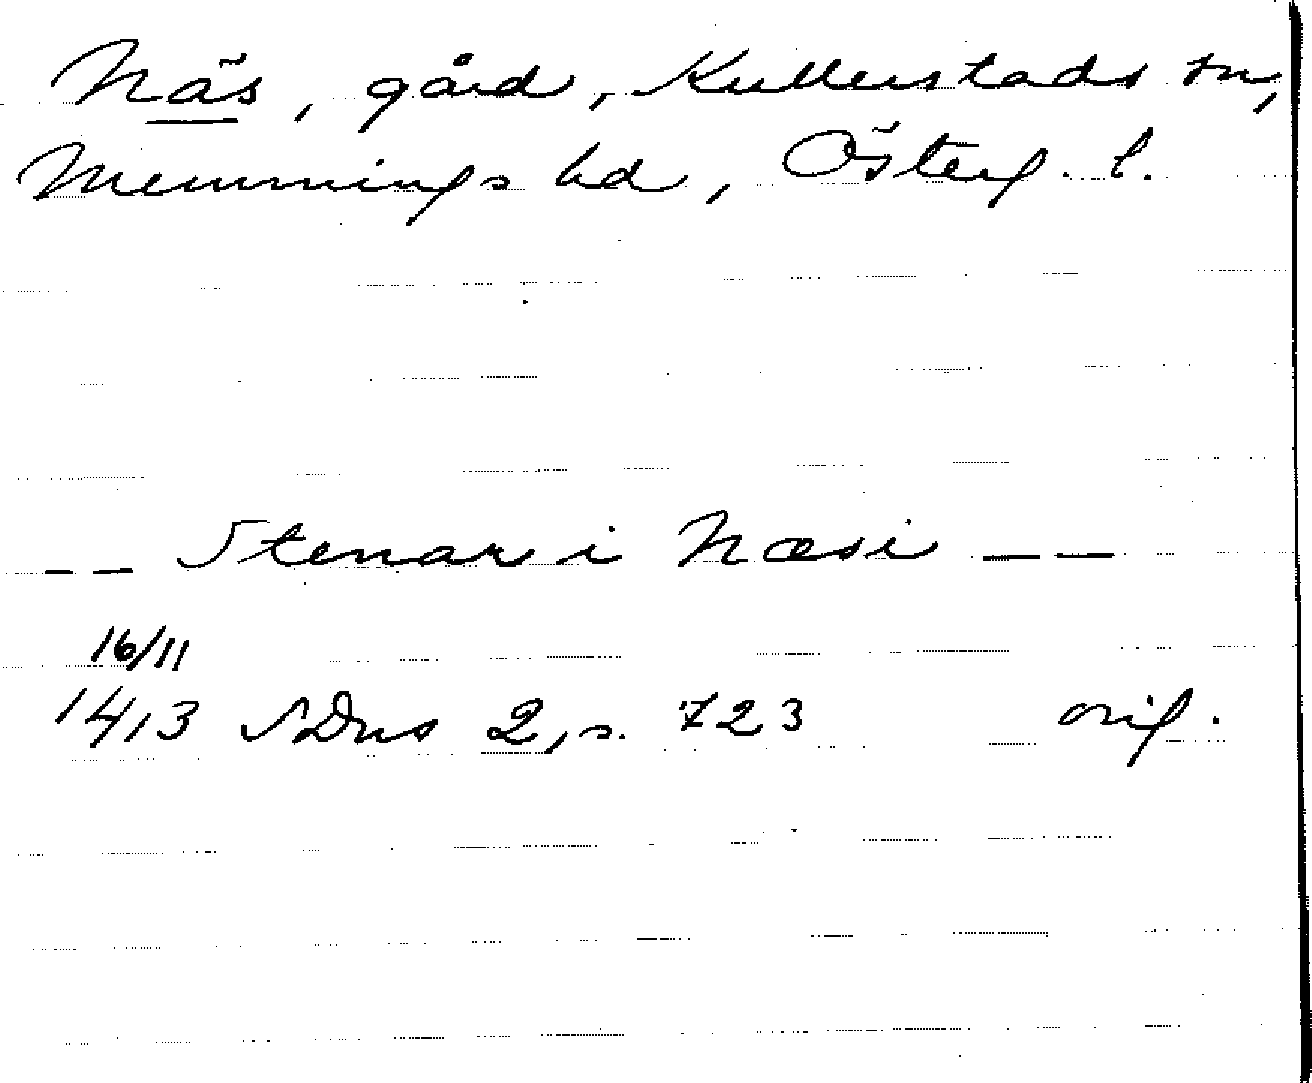 Näs, gård, Kullerstads sn,
Memmings hd, Österg. l.
-- Stenar i Næsi --
16/11
1413 SDns 2, s. 723 orig.